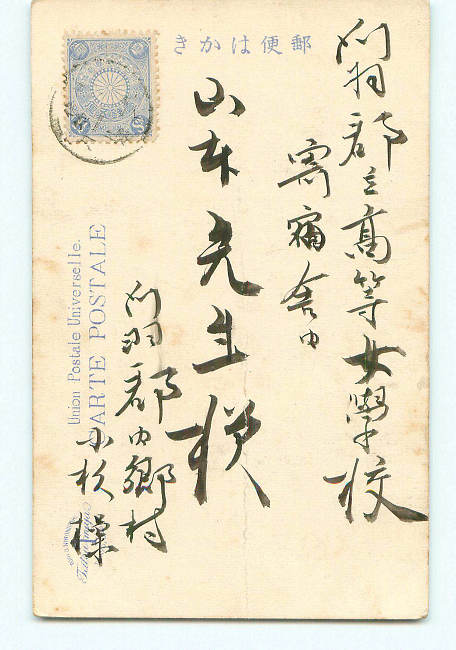 郵便はかき
刈羽郡立高等女學校
寄宿舎内
山本先生様
刈羽郡内郷村
小杉操
Union Postale Universelle.
CARTE POSTALE